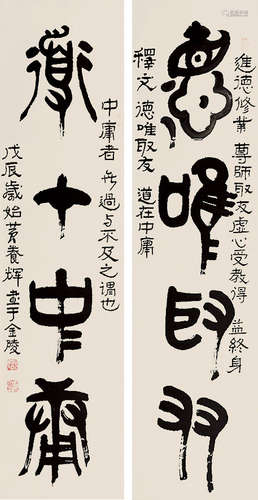 惪唯取友
進德修業 尊師取友 虛心受教 得益終身
釋文 德唯取友 道在中庸
道十中庸
中庸者 無過與不及之謂也
戊辰歲始 黃養輝書于金陵